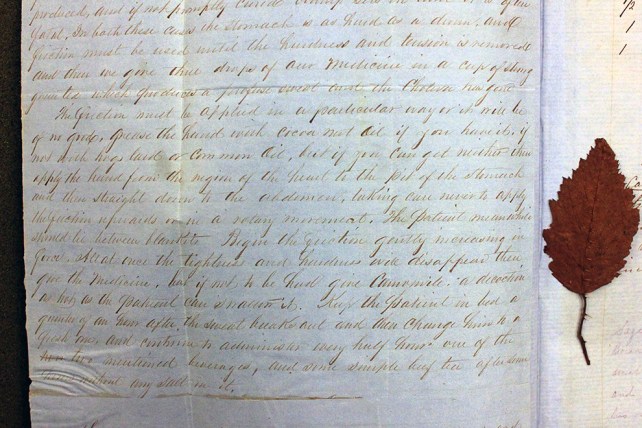 produced, and if not promptly cured
fatal. In both these cases the stomach is as hard as a drum, and
friction must be used until the hardness and tension is removed
and then we give three drops of our Medicine in a cup of strong
which produces a profuse sweat and the Cholera has gone
The friction must be applied in a particular way or it will be
of no good, grease the hand with cocoa nut oil if you have it, if
not with hogs lard or common oil, but if you can get neither then
apply the hand from the region of the heart to the pit of the stomach
and then straight down to the abdomen, taking care never to apply
the friction upwards or in a rotary movement. The patient meanwhile
should be between blankets Begin the friction gently increasing in
force. At once the tightness and hardness will disappear then
give the Medicine, but if not to be had give Camomile: a decoction
as hot as the patient can swallow it. Keep the patient in bed
of an hour after, the sweat breaks out and then change him to a
fresh one, and continue to administer every half hour one of the
two mentioned beverages, and some simple beef tea
without any salt in it.